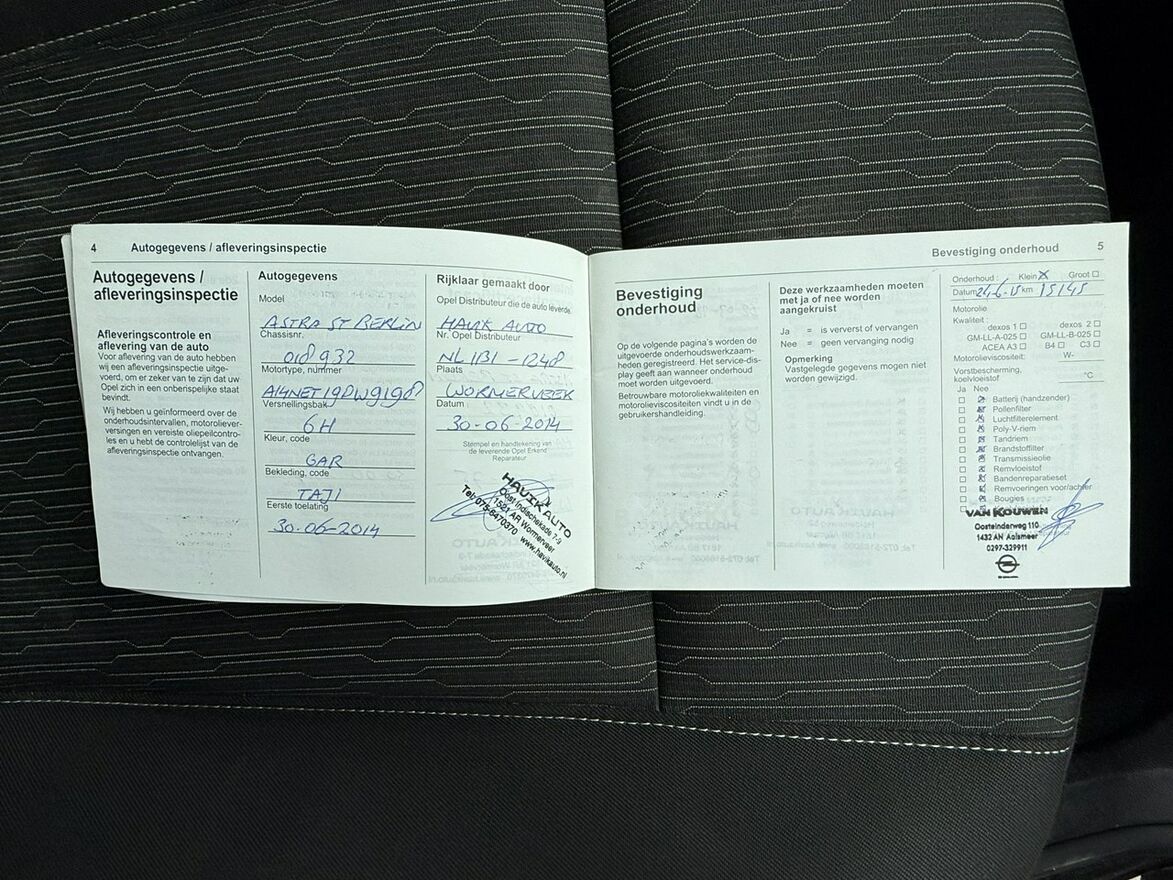 4 Autogegevens / afleveringsinspectie
Autogegevens /
afleveringsinspectie
Afleveringscontrole en
aflevering van de auto
Voor aflevering van de auto hebben
wij een afleveringsinspectie uitge-
voerd, om er zeker van te zijn dat uw
Opel zich in een onberispelijke staat
bevindt.
Wij hebben u geïnformeerd over de
onderhoudsintervallen, motoroliever-
versingen en vereiste oliepeilcontro-
les en u hebt de controlelijst van de
afleveringsinspectie ontvangen.
Autogegevens
Model
ASTRA ST BERLIN
Chassisnr.
018932
Motortype, nummer
A14NET19PW9198
Versnellingsbak
6H
Kleur, code
GAR
Bekleding, code
TAJI
Eerste toelating
30-06-2014
Rijklaar gemaakt door
Opel Distributeur die de auto leverde.
HAVIK AUTO
Nr. Opel Distributeur
NL 1131 - 1248
Plaats
WORMERVEER
Datum
30-06-2014
Stempel en handtekening van
de leverende Opel Erkend
Reparateur
HAVIK AUTO
Oost Indischekade 7-9
1521 AR Wormerveer
Tel: 075-6470370 www.havikauto.nl
Bevestiging onderhoud 5
Bevestiging
onderhoud
Op de volgende pagina's worden de
uitgevoerde onderhoudswerkzaam-
heden geregistreerd. Het service-dis-
play geeft aan wanneer onderhoud
moet worden uitgevoerd.
Betrouwbare motoroliekwaliteiten en
motorolieviscositeiten vindt u in de
gebruikershandleiding.
Deze werkzaamheden moeten
met ja of nee worden
aangekruist
Ja = is ververst of vervangen
Nee = geen vervanging nodig
Opmerking
Vastgelegde gegevens mogen niet
worden gewijzigd.
Onderhoud: Klein Groot
Datum 24-6-15 km 15145
Motorolie
Kwaliteit
dexos 1 dexos 2
GM-LL-A-025 GM-LL-B-025
ACEA A3 B4 C3
Motorolieviscositeit: W-
Vorstbescherming,
koelvloeistof °C
Ja Nee
Batterij (handzender)
Pollenfilter
Luchtfilterelement
Poly-V-riem
Tandriem
Brandstoffilter
Transmissieolie
Remvloeistof
Bandenreparatieset
Remvoeringen voor/achter
Bougies
VAN KOUWEN
Oosteinderweg 110
1432 AN Aalsmeer
0297-329911